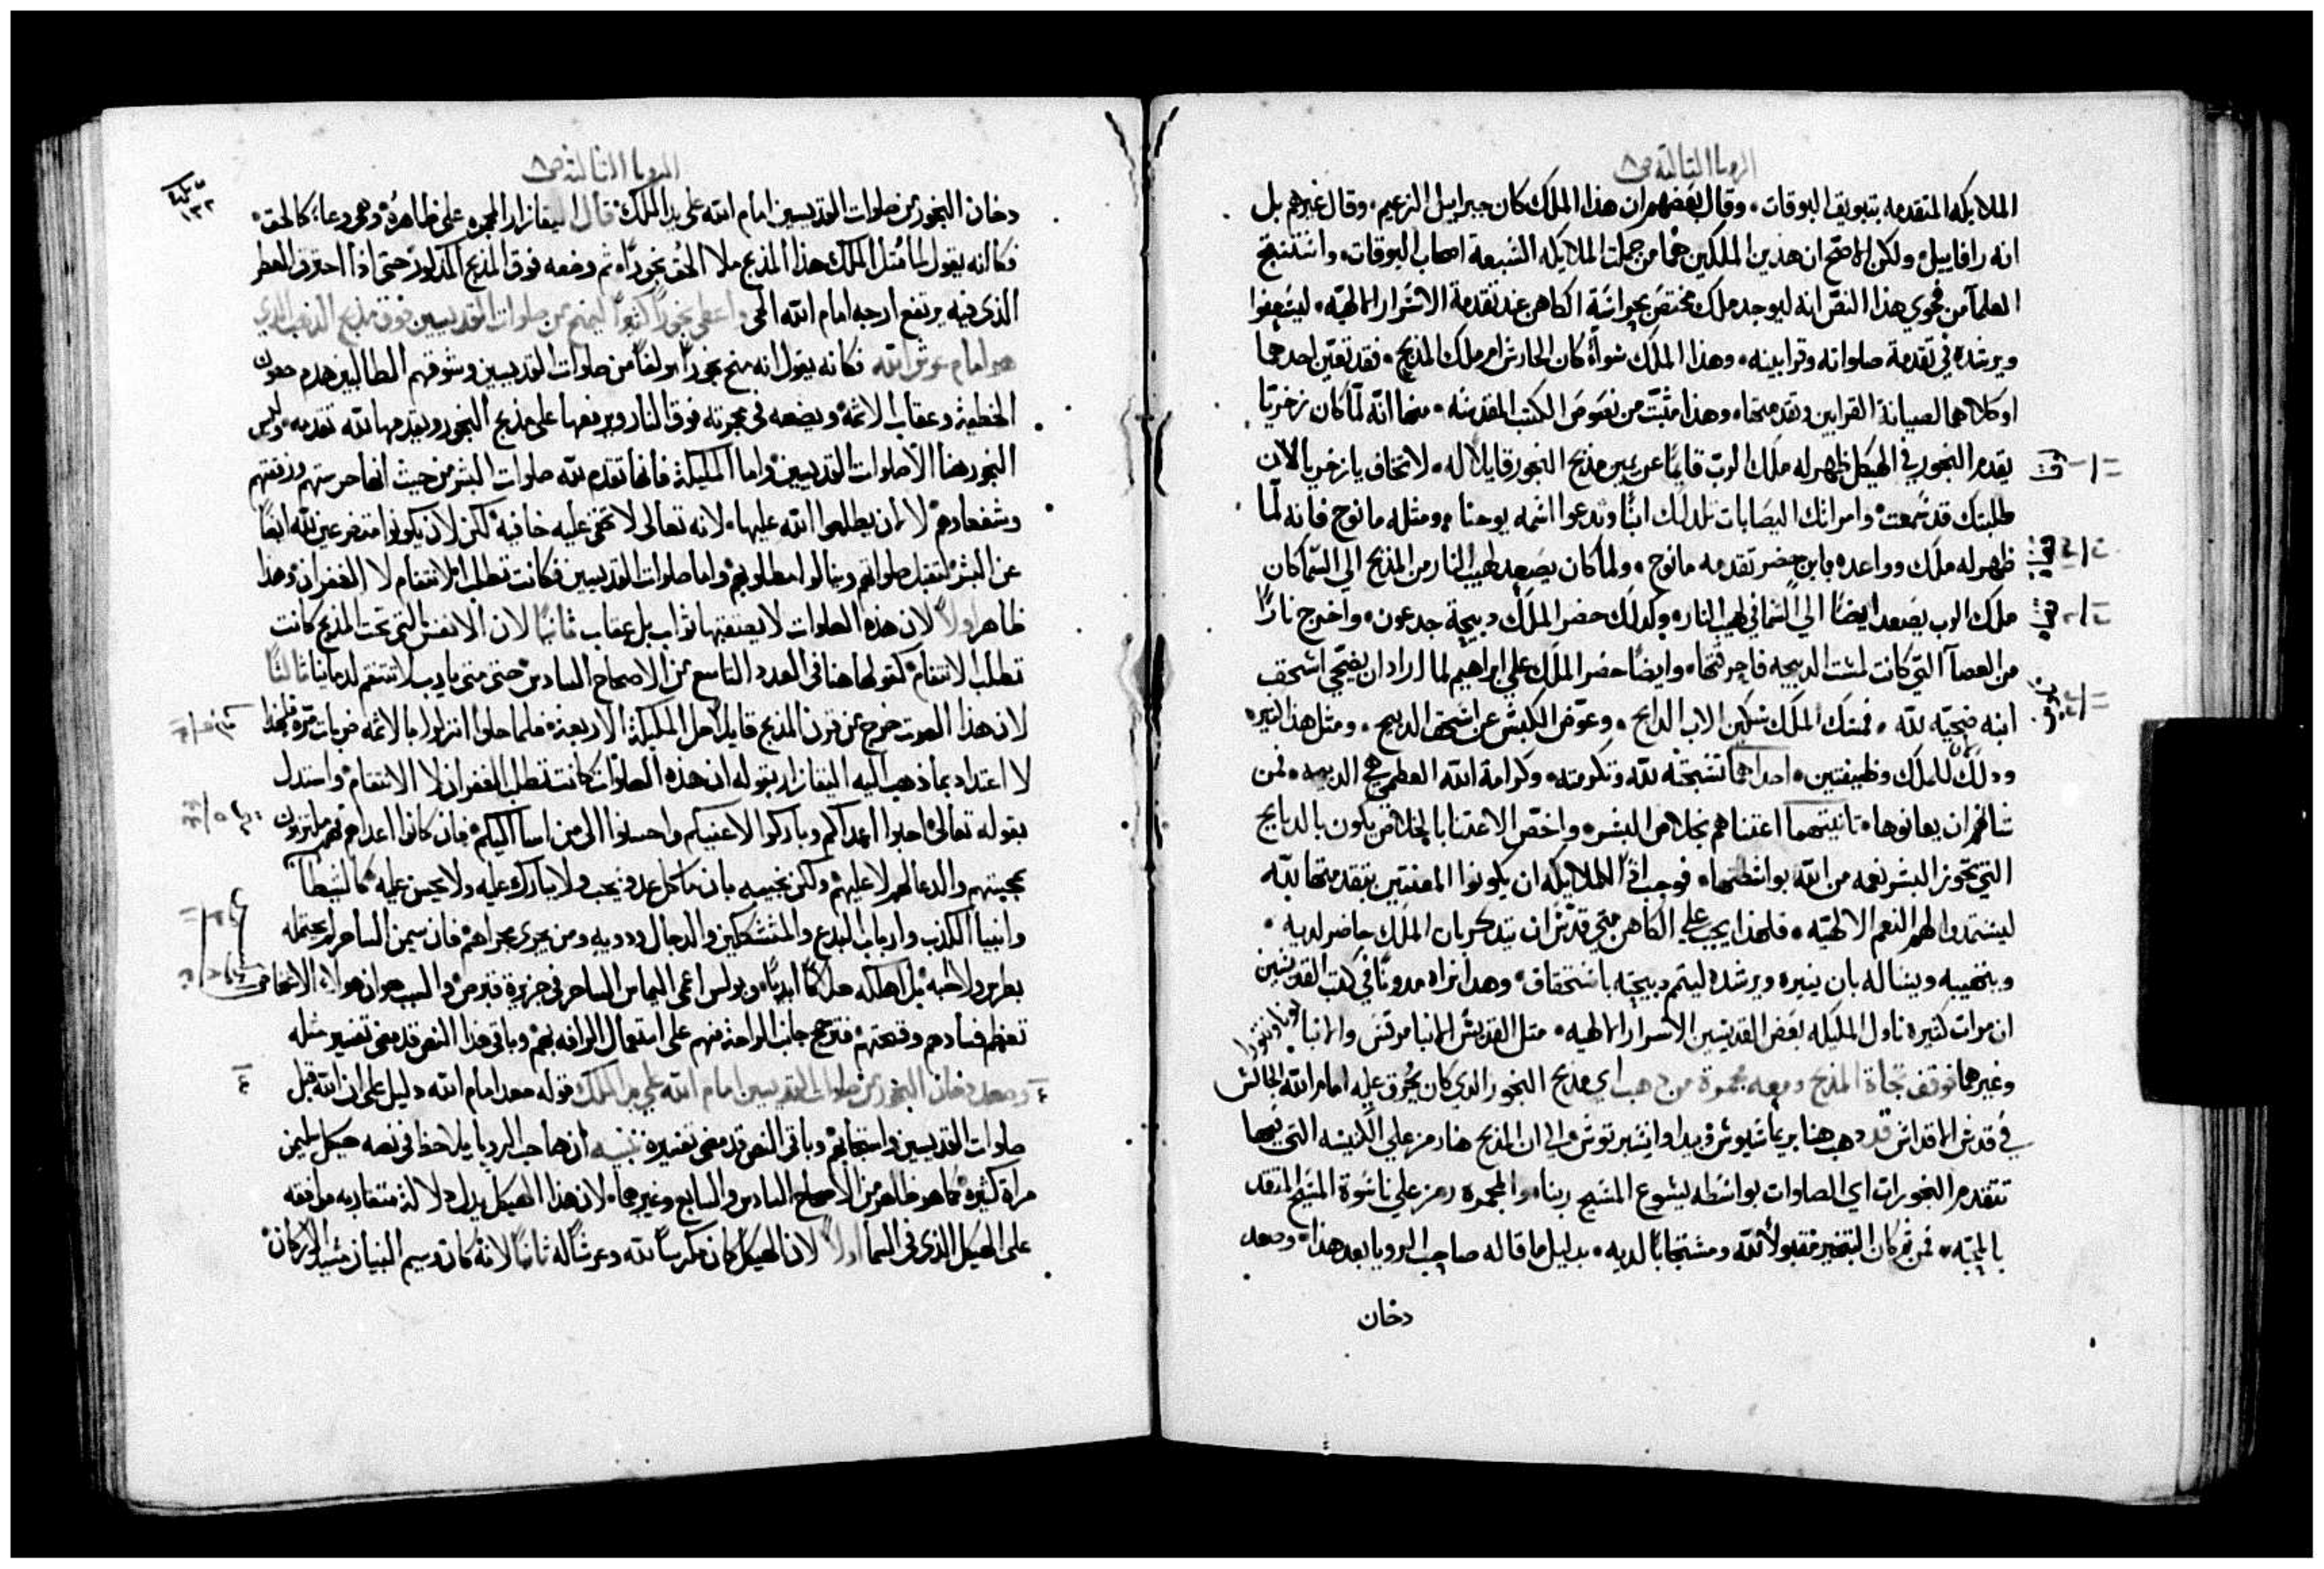 الرويا الثالثة ص٨
الملايكه المتقدمه بتبويق البوقات. وقال بعضهم ان هذا الملك كان جبراييل الزعيم. وقال غيرهم بل
انه رافاييل. ولكن الاصح ان هذين الملكين هما من جملت الملايكه السبعة اصحاب البوقات. واستنتج
العلمآ من فحوي هذا النص انه ليوجد ملك مختص بحراسة الكاهن عند تقدمة الاسرار الالهيه. ليسعفوا
ويرشده في تقدمة صلواته وقرابينه. وهذا الملك سوآة كان الحارس ام ملك المذبح. فقد تعين احدهما
او كلاهما لصيانة القرابين وتقدمتها. وهذا مثبت من نصوص الكتب المقدسه. منها انه لما كان زخريا
يقدم البخور في الهيكل ظهر له ملك الرب قايما عن يمين مذبح البخور قايلا له. لا تخاف يا زخريا لان
طلبتك قد سمعت. وامراتك اليصابات تلد لك ابنا وتدعوا اسمه يوحنا. ومثله مانوح فانه لما
ظهر له ملك وواعده بابن حضر تقدمه مانوح. ولما كان يصعد لهيب النار من المذبح الي السما كان
ملك الرب يصعد ايضا الي السما في لهيب النار. وكدلك حضر الملك دبيحة جدعون. واخرج نارا
من العصآ التي كانت لمست الدبيحه فاحرقتها. وايضا حضر الملك علي ابراهيم لما اراد ان يضحي اسحق
ابنه ضحيه لله. فمسك الملك سكين الاب الدابح. وعوض الكبش عن اسحق الدبيح. ومثل هذا كتيره
ودلك للملك وظيفتين. احداهما تسبحته لله وتكرمته. وكرامة الله العظمي هي الدبيحه. فمن
شانهم ان يعانوها. تانيتهما اعتناهم بخلاص البشر. واخص الاعتنا بالخلاص يكون بالدبايح
التي تحوز البشر نعمه من الله بواسطتها. فوجب ادا للملايكه ان يكونوا المعتنيين بتقدمتها لله
ليستمدوا لهم النعم الالهيه. فلهذا يجب علي الكاهن متي قدس ان يتدكر بان الملك حاضر لديه.
وينتهيبه ويساله بان ينيره ويرشده ليتم دبيحته باستحقاق. وهدا نراه مدونا في كتب القديسين
ان مرات كتيره ناول المليكه بعض القديسين الاسرار الالهيه. متل القديس الانبا مرقس والانبا
وغيرهما فوقف تجاة المذبح ومعه مجمرة من دهب اي مذبح البخور الدي كان يحرق عليه امام الله الجالس
في قدس الاقداس قد دهب هنا بريماسيوس وبيدا وانسبرتوس الي ان المدبح هنا رمز علي الكنيسه التي فيها
تتقدم البخورات اي الصلوات بواسطه يسوع المسيح ربنا. والمجمره رمز علي ناسوة المسيح المتقد
بالمحبه. فمن ثم كان البخير مقبولا لله ومستجابا لديه. بدليل ما قاله صاحب الرويا بعد هذا. وصعد
دخان
الرويا الثالثة ص٨
١٣٢
دخان البخور من صلوات القديسين امام الله على يد الملك قال اليفازار المجمره على ظاهرها وهي وعاء كالحق
فكانه يقول لما مثل الملك هذا المذبح ملا الحق بخورا. ثم وضعه فوق المذبح المذكور حتى اذا احترق العطر
الذي فيه يرتفع ارجه امام الله الحي واعطي بخورا كثيرا ليمنح من صلوات القديسين فوق مذبح الذهب الذي
هو امام عرش الله فكانه يقول انه منح بخورا مولفا من صلوات القديسين وشوقهم الطالبين هدم حصون
الخطية وعقاب الاثمة ويضعه في مجمرته فوق النار ويرفعها على مذبح البخور ويقدمها لله تقدمه وليس
البخور هنا الا صلوات القديسين واما المليكة فانها تقدم لله صلوات البشر من حيث انها حرستهم ورفقتهم
وشفعاوهم لا لان يطلعوا الله عليها. لانه تعالى لا تخفى عليه خافية لكن لان يكونوا متضرعين لله ايضا
عن البشر لتقبل صلواتهم وينالوا مطلوبهم واما صلوات القديسين فكانت تطلب الانتقام لا الغفران وهذا
ظاهر اولا لان هذه الصلوات لا يعقبها ثواب بل عقاب ثانيا لان الانفس التي تحت المذبح كانت
تطلب الانتقام كقولها هنا في العدد التاسع من الاصحاح السادس حتى متى يا رب لا تنتقم لدماينا ثالثا
لان هذا الصوت خرج من قرون المذبح قايلا حل المليكة الاربعة فلما حلوا انزلوا بالاثمه ضربات مره فلهذا
لا اعتداد بما ذهب اليه اليفازار بقوله ان هذه الصلوات كانت تطلب الغفران لا الانتقام واستدل
بقوله تعالى احبوا اعداكم وباركوا لاعنيكم واحسنوا الى من اسا اليكم فان كانوا اعداهم فهم ملتزمون
بمحبتهم والدعا لهم لا عليهم ولكن نجيبه بان ما كل عدو يحب ولا يبارك عليه ولا يحسن عليه كالشيطان
وانبيا الكذب وارباب البدع والمتشككين والدجال وذويه ومن يجري مجراهم فان سيمن الساحر لم يحتمله
بطرس ولا احبه بل اهلكه هلاكا ابديا. وبولس اعمى اليماس الساحر في جزيرة قبرص والسبب هو ان هولاء الاشخاص
تعظم فسادهم وقحتهم فترجح جانب المراحه منهم على استعمال الرافه بهم وباقي هذا النص قد مضى تفسير مثله
وصعد دخان البخور من صلوات القديسين امام الله على يد الملك قوله صعد امام الله دليل على ان الله قبل
صلوات القديسين واستجابهم وباقي النص قد مضى تفسيره تنبيه ان صاحب الرويا يلاحظ في نصه هيكل سليمن
مرارا كثيرة كما هو ظاهر من الاصحاح السادس والسابع وغيرهما. لان هذا الهيكل يدل دلالة متقاربه موافقه
على الهيكل الذي في السما اولا لان الهيكل كان مكرسا لله وعرشا له ثانيا لانه كان وسيم البنيان مشيد الاركان